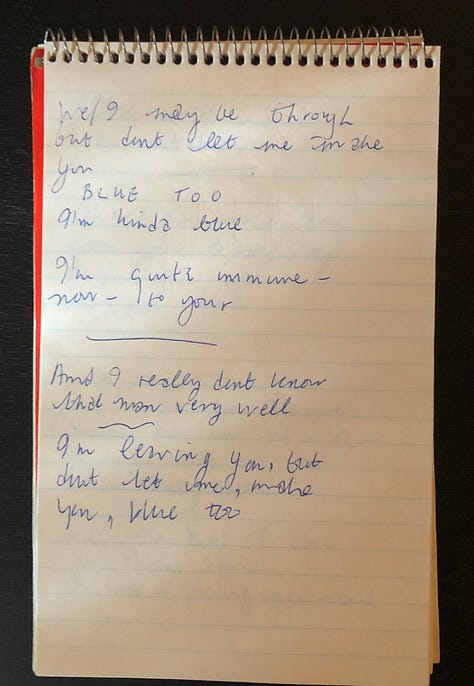 We/I may be through
but dont let me make
you
BLUE TOO
I'm kinda blue
I'm quite immune –
now – to your
And I really dont know
that man very well
I'm leaving you, but
dont let me, make
you, blue too